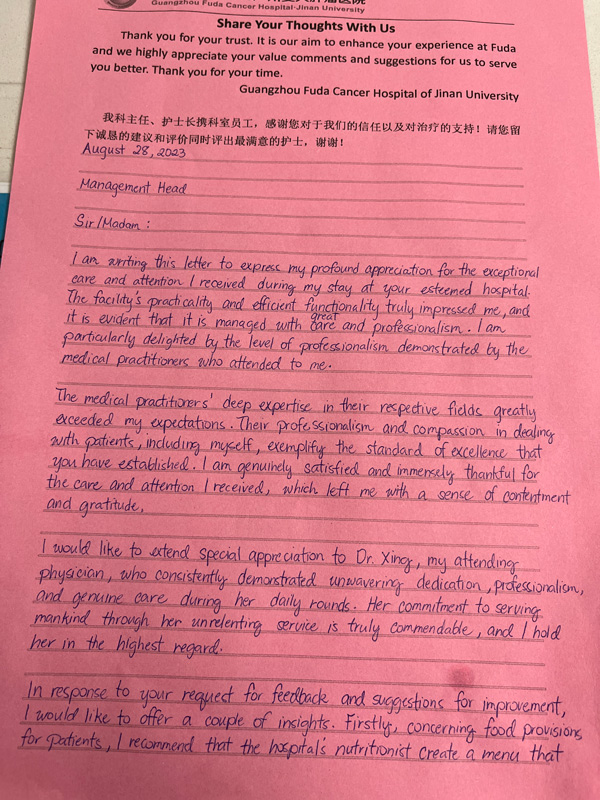 Guangzhou Fuda Cancer Hospital·Jinan University
Share Your Thoughts With Us
Thank you for your trust. It is our aim to enhance your experience at Fuda
and we highly appreciate your value comments and suggestions for us to serve
you better. Thank you for your time.
Guangzhou Fuda Cancer Hospital of Jinan University
我科主任、护士长携科室员工,感谢您对于我们的信任以及对治疗的支持!请您留
下诚恳的建议和评价同时评出最满意的护士,谢谢!
August 28, 2023
Management Head
Sir/Madam :
I am writing this letter to express my profound appreciation for the exceptional
care and attention I received during my stay at your esteemed hospital.
The facility's practicality and efficient functionality truly impressed me, and
it is evident that it is managed with great care and professionalism. I am
particularly delighted by the level of professionalism demonstrated by the
medical practitioners who attended to me.
The medical practitioners' deep expertise in their respective fields greatly
exceeded my expectations. Their professionalism and compassion in dealing
with patients, including myself, exemplify the standard of excellence that
you have established. I am genuinely satisfied and immensely thankful for
the care and attention I received, which left me with a sense of contentment
and gratitude,
I would like to extend special appreciation to Dr. Xing, my attending
physician, who consistently demonstrated unwavering dedication, professionalism,
and genuine care during her daily rounds. Her commitment to serving
mankind through her unrelenting service is truly commendable, and I hold
her in the highest regard.
In response to your request for feedback and suggestions for improvement,
I would like to offer a couple of insights. Firstly, concerning food provisions
for patients, I recommend that the hospital's nutritionist create a menu that